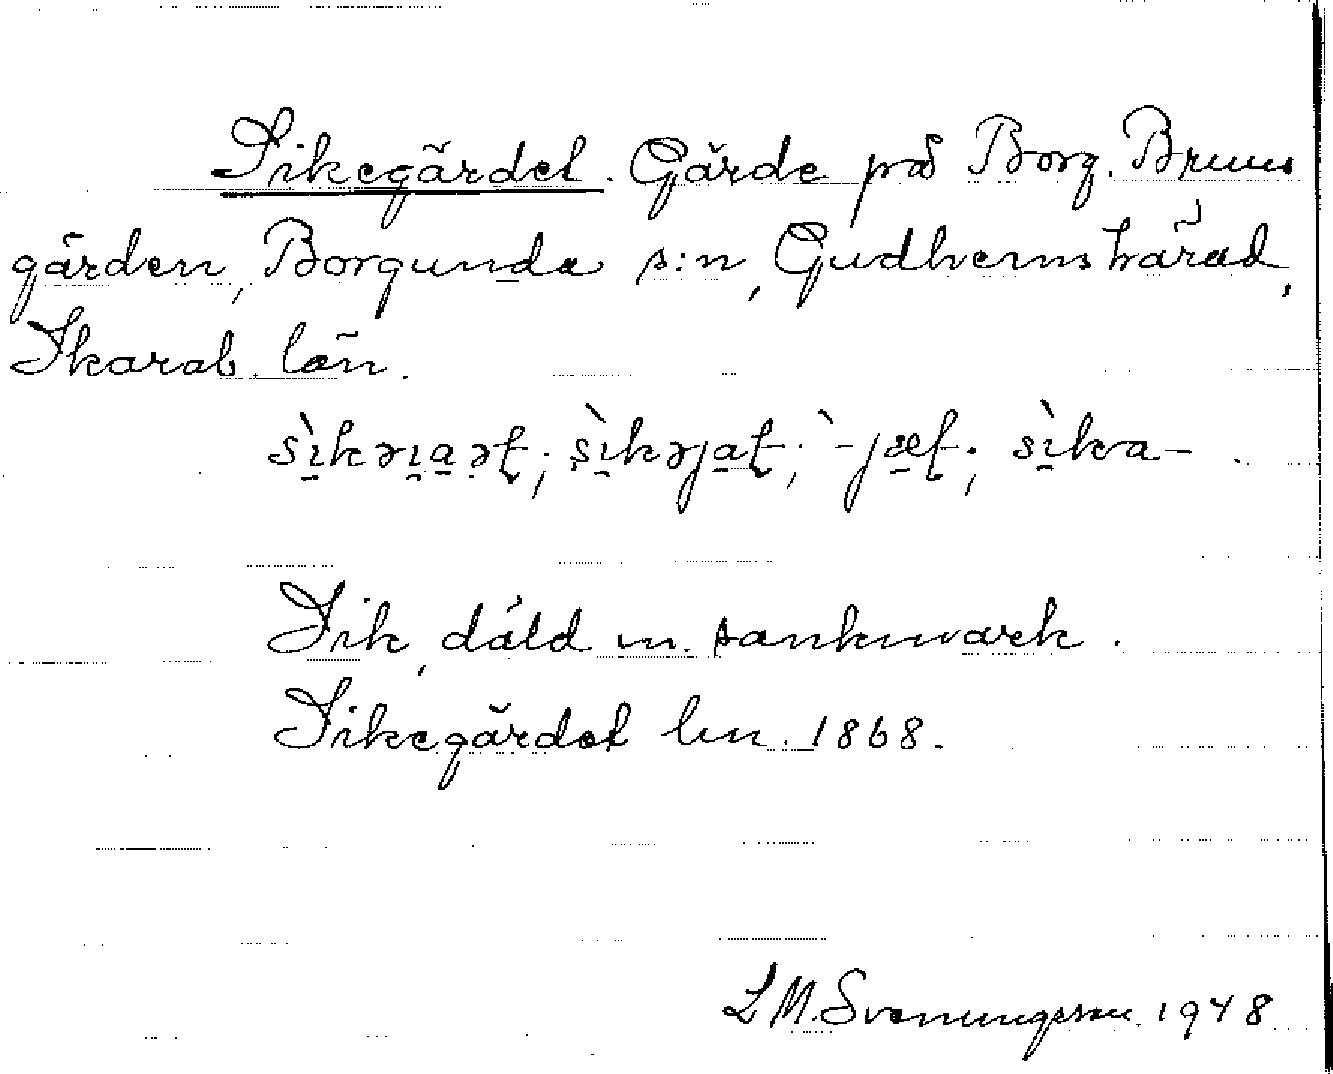 Sikegärdet. Gärde på Borg. Bruns
gården, Borgunda s:n, Gudhems härad,
Skarab. län.
sìkəɿaət; sìkəjat; `-jæt; sìka- .
Sik, däld m. sankmark.
Sikegärdet lm. 1868.
L M. Svenungsson 1948